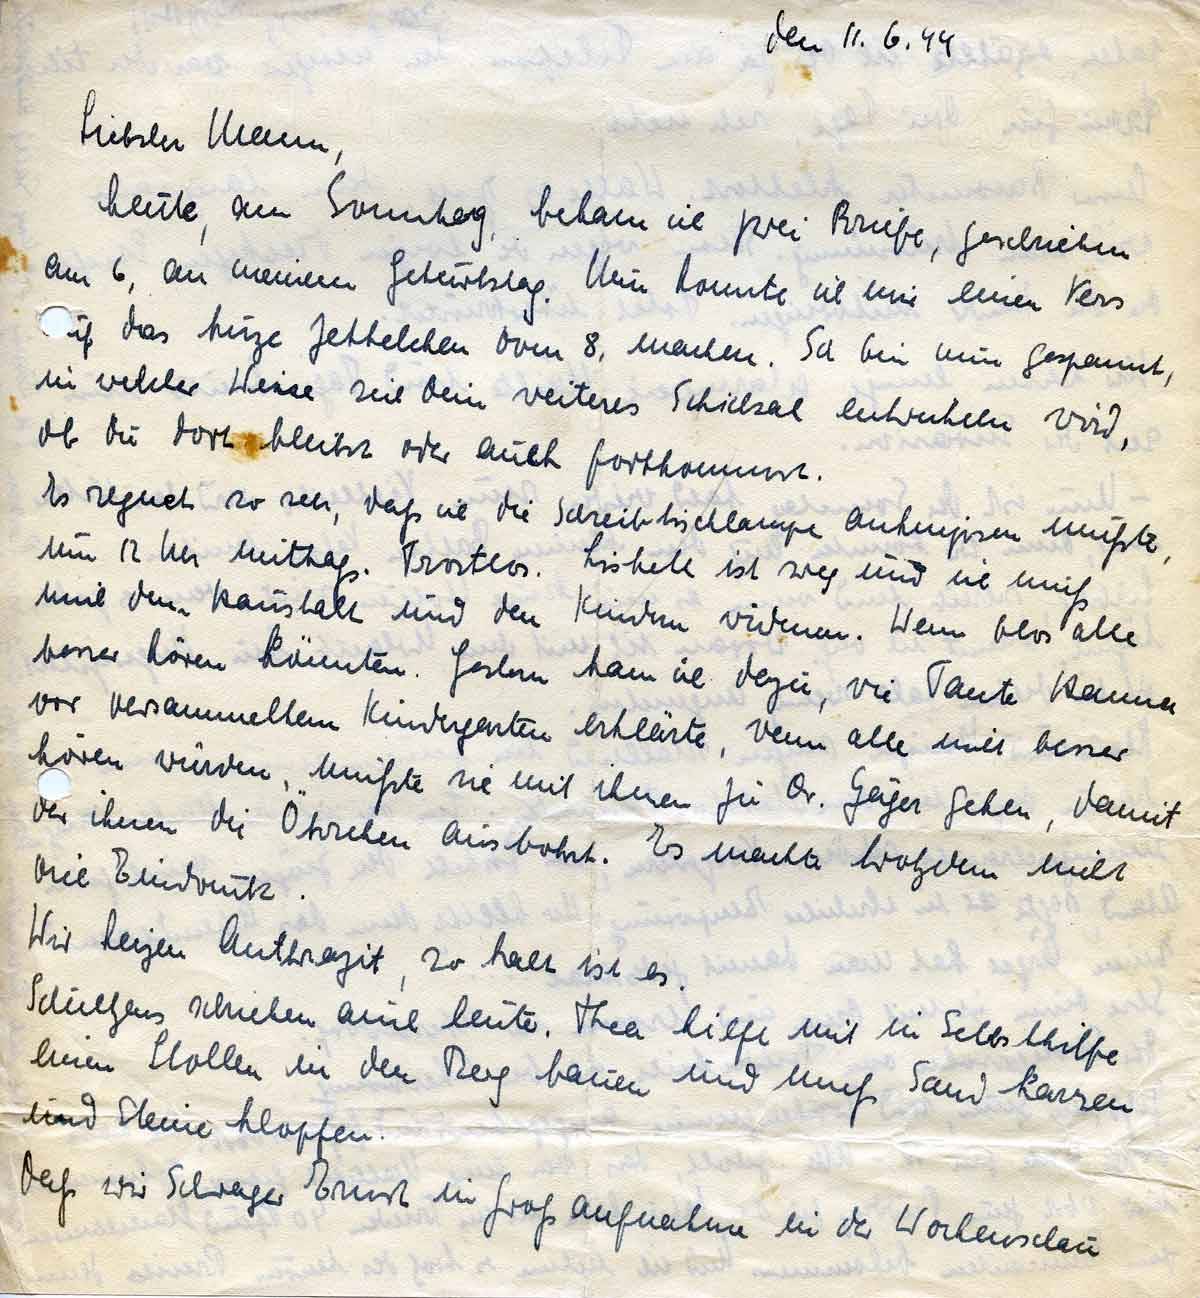 den 11. 6. 44
Liebster Mann,
heute, am Sonntag, bekam ich zwei Briefe, geschrieben
am 6, an meinem Geburtstag. Nun konnte ich mir einen Vers
auf das kurze Zettelchen vom 8. machen. Ich bin nun gespannt,
in welcher Weise sich Dein weiteres Schicksal entwickeln wird,
ob Du dort bleibst oder auch fortkommst.
Es regnet so sehr, daß ich die Schreibtischlampe anknipsen mußte,
um 12 Uhr mittags. Trostlos. Lisbeth ist weg und ich muß
mich dem Haushalt und den Kindern widmen. Wenn blos alle
besser hören könnten. Gestern kam ich dazu, wie Tante Hanna
vor versammeltem Kindergarten erklärte, wenn alle nicht besser
hören würden, müßte sie mit ihnen zu Dr. Geiger gehen, damit
der ihnen die Öhrchen ausbohrt. Es machte trotzdem nicht
viel Eindruck.
Wir heizen Anthrazit, so kalt ist es.
Schultzens schrieben auch heute. Thea hilft mit in Selbsthilfe
einen Stollen in den Berg bauen und muß Sand karren
und Steine klopfen.
Daß wir Schwager Ernst in Großaufnahme in der Wochenschau